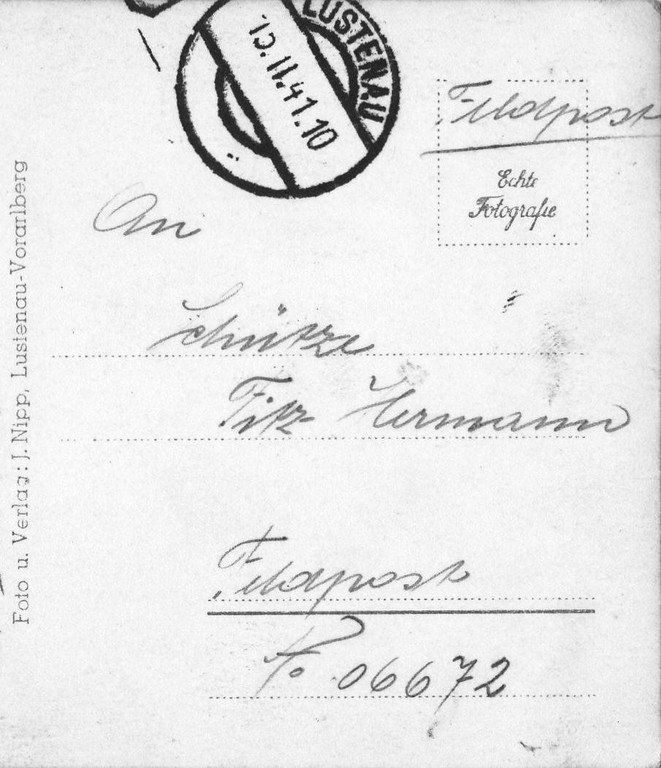 LUSTENAU
15.II.41.10
Feldpost
Echte
Fotografie
An
Schütze
Fitz Hermann
Feldpost
No 06672
Foto u. Verlag: J. Nipp, Lustenau-Vorarlberg